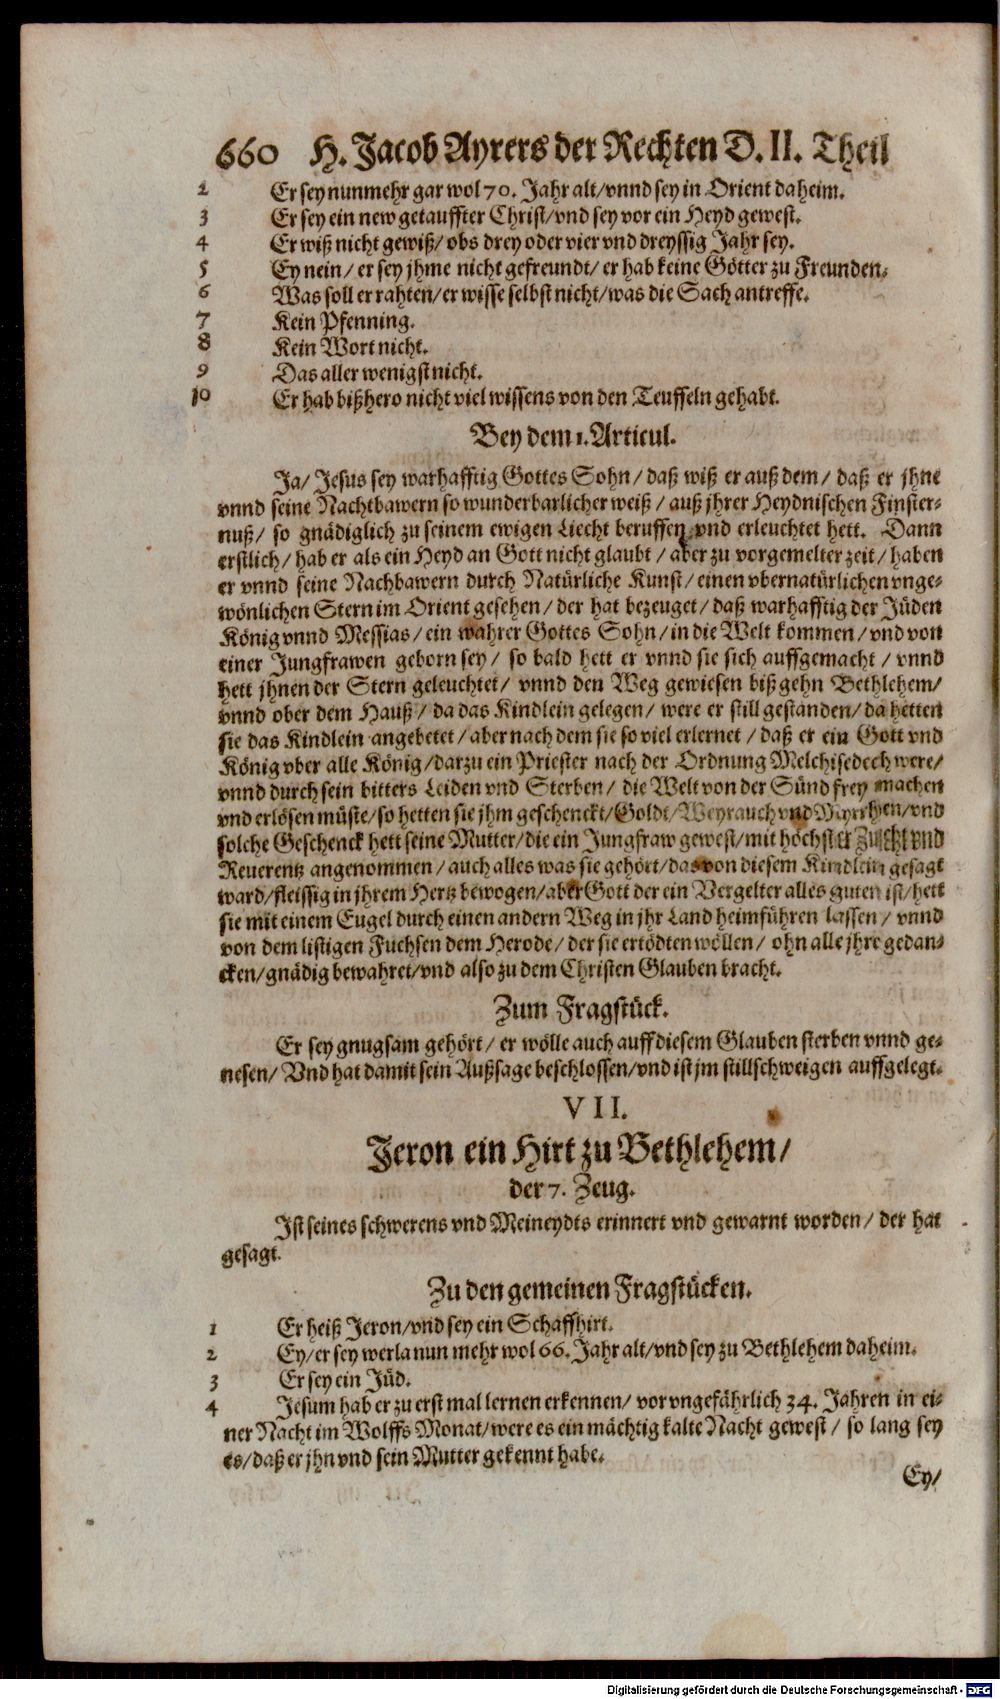 660 H. Jacob Ayrers der Rechten D. II. Theil
2 Er sey nunmehr gar wol 70. Jahr alt/vnnd sey in Orient daheim.
3 Er sey ein new getauffter Christ/vnd sey vor ein Heyd gewest.
4 Er wiß nicht gewiß/ obs drey oder vier vnd dreyssig Jahr sey.
5 Ey nein/ er sey jhme nicht gefreundt/ er hab keine Götter zu Freunden.
6 Was soll er rahten/er wisse selbst nicht/was die Sach antreffe.
7 Kein Pfenning.
8 Kein Wort nicht.
9 Das aller wenigst nicht.
10 Er hab bißhero nicht viel wissens von den Teuffeln gehabt.
Bey dem 1. Articul.
Ja/ Jesus sey warhafftig Gottes Sohn/ daß wiß er auß dem/ daß er jhne
vnnd seine Nachtbawern so wunderbarlicher weiß/ auß jhrer Heydnischen Finster-
nuß/ so gnädiglich zu seinem ewigen Liecht beruffen vnd erleuchtet hett. Dann
erstlich/ hab er als ein Heyd an Gott nicht glaubt/ aber zu vorgemelter zeit/ haben
er vnnd seine Nachbawern durch Natürliche Kunst/ einen vbernatürlichen vnge-
wönlichen Stern im Orient gesehen/ der hat bezeuget/ daß warhafftig der Jüden
König vnnd Messias/ ein wahrer Gottes Sohn/in die Welt kommen/ vnd von
einer Jungfrawen geborn sey/ so bald hett er vnnd sie sich auffgemacht/ vnnd
hett jhnen der Stern geleuchtet/ vnnd den Weg gewiesen biß gehn Bethlehem/
vnnd ober dem Hauß/ da das Kindlein gelegen/ were er still gestanden/ da hetten
sie das Kindlein angebetet/ aber nach dem sie so viel erlernet/ daß er ein Gott vnd
König vber alle König/darzu ein Priester nach der Ordnung Melchisedech were/
vnnd durch sein bitters Leiden vnd Sterben/ die Welt von der Sünd frey machen
vnd erlösen müste/so hetten sie jhm geschenckt/Goldt/Weyrauch vnd Myrrhen/vnd
solche Geschenck hett seine Mutter/die ein Jungfraw gewest/mit höchster Zucht vnd
Reuerentz angenommen/ auch alles was sie gehört/das von diesem Kindlein gesagt
ward/fleissig in jhrem Hertz bewogen/aber Gott der ein Vergelter alles guten ist/hett
sie mit einem Eugel durch einen andern Weg in jhr Land heimführen lassen/ vnnd
von dem listigen Fuchsen dem Herode/ der sie ertödten wöllen/ ohn alle jhre gedan-
cken/gnädig bewahret/vnd also zu dem Christen Glauben bracht.
Zum Fragstück.
Er sey gnugsam gehört/ er wölle auch auff diesem Glauben sterben vnnd ge-
nesen/ Vnd hat damit sein Außsage beschlossen/vnd ist jm stillschweigen auffgelegt.
VII.
Jeron ein Hirt zu Bethlehem/
der 7. Zeug.
Ist seines schwerens vnd Meineydts erinnert vnd gewarnt worden/ der hat
gesagt.
Zu den gemeinen Fragstücken.
1 Er heiß Jeron/vnd sey ein Schaffhirt.
2 Ey/er sey werla nun mehr wol 66. Jahr alt/vnd sey zu Bethlehem daheim.
3 Er sey ein Jüd.
4 Jesum hab er zu erst mal lernen erkennen/ vor vngefährlich 34. Jahren in ei-
ner Nacht im Wolffs Monat/were es ein mächtig kalte Nacht gewest/ so lang sey
es/daß er jhn vnd sein Mutter gekennt habe.
Ey/
Digitalisierung gefördert durch die Deutsche Forschungsgemeinschaft - DFG